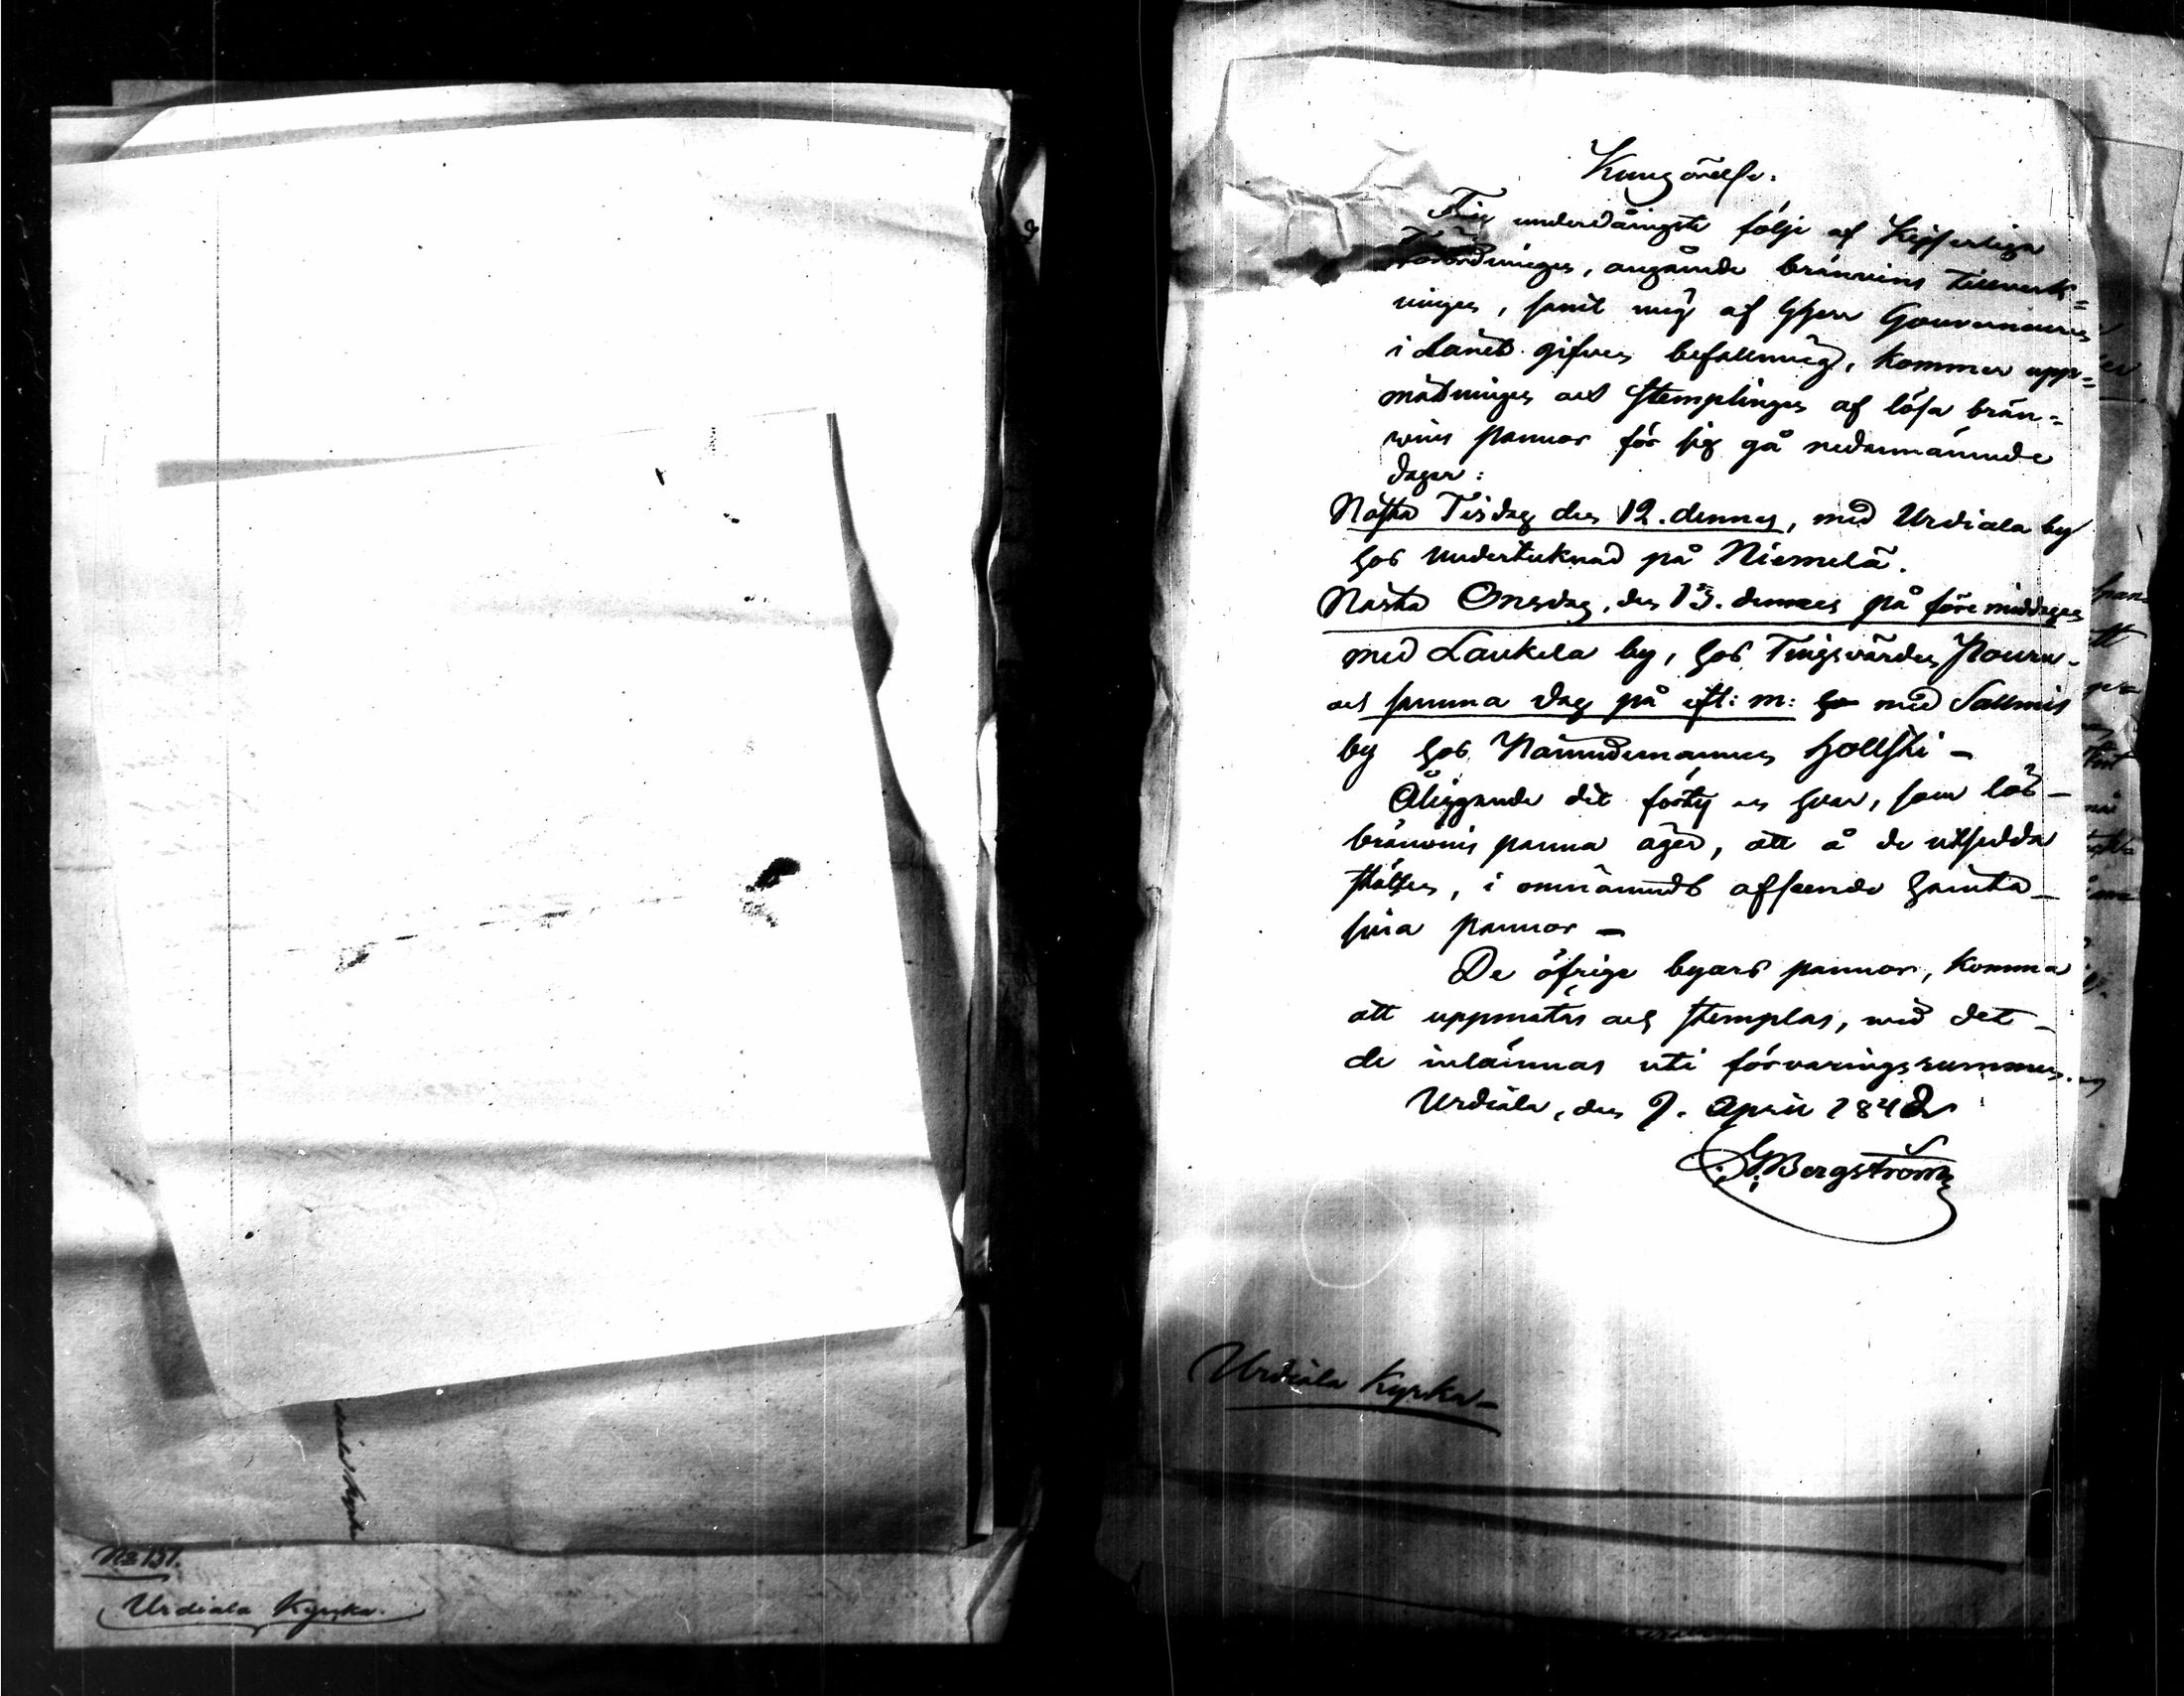 Kungörelse.
Till underdånigste följe af Kejserliga
Förordningen, angående bränvins tillverk=
ningen, samt mig af Herr Gouverneuren
i Länet gifven befallning, kommer upp=
mätningen och stemplingen af lösa brän=
vins pannor för sig gå nedannämnde
dagar:
Nästa Tisdag den 12. dennes, med Urdiala by
hos undertecknad på Niemelä.
Nästa Onsdag, den 13. dennes på föremiddagen
med Laukela by, hos Tingsvärden Pouru-
och samma dag på eft: m: med Salmis
by hos Nämndemannen Hollsti -
Åliggande det förty en hvar, som lös-
bränvins panna äger, att å de utsedda
ställen, i omnämndt afseende hämta-
sina pannor -
De öfrige byars pannor, komma
att uppmätas och stemplas, med det-
de inlämnas uti förvaringsrummen.
Urdiala, den 9. April 1842
G: Bergström
Urdiala Kyrka-
No 151.
Urdiala Kyrka.